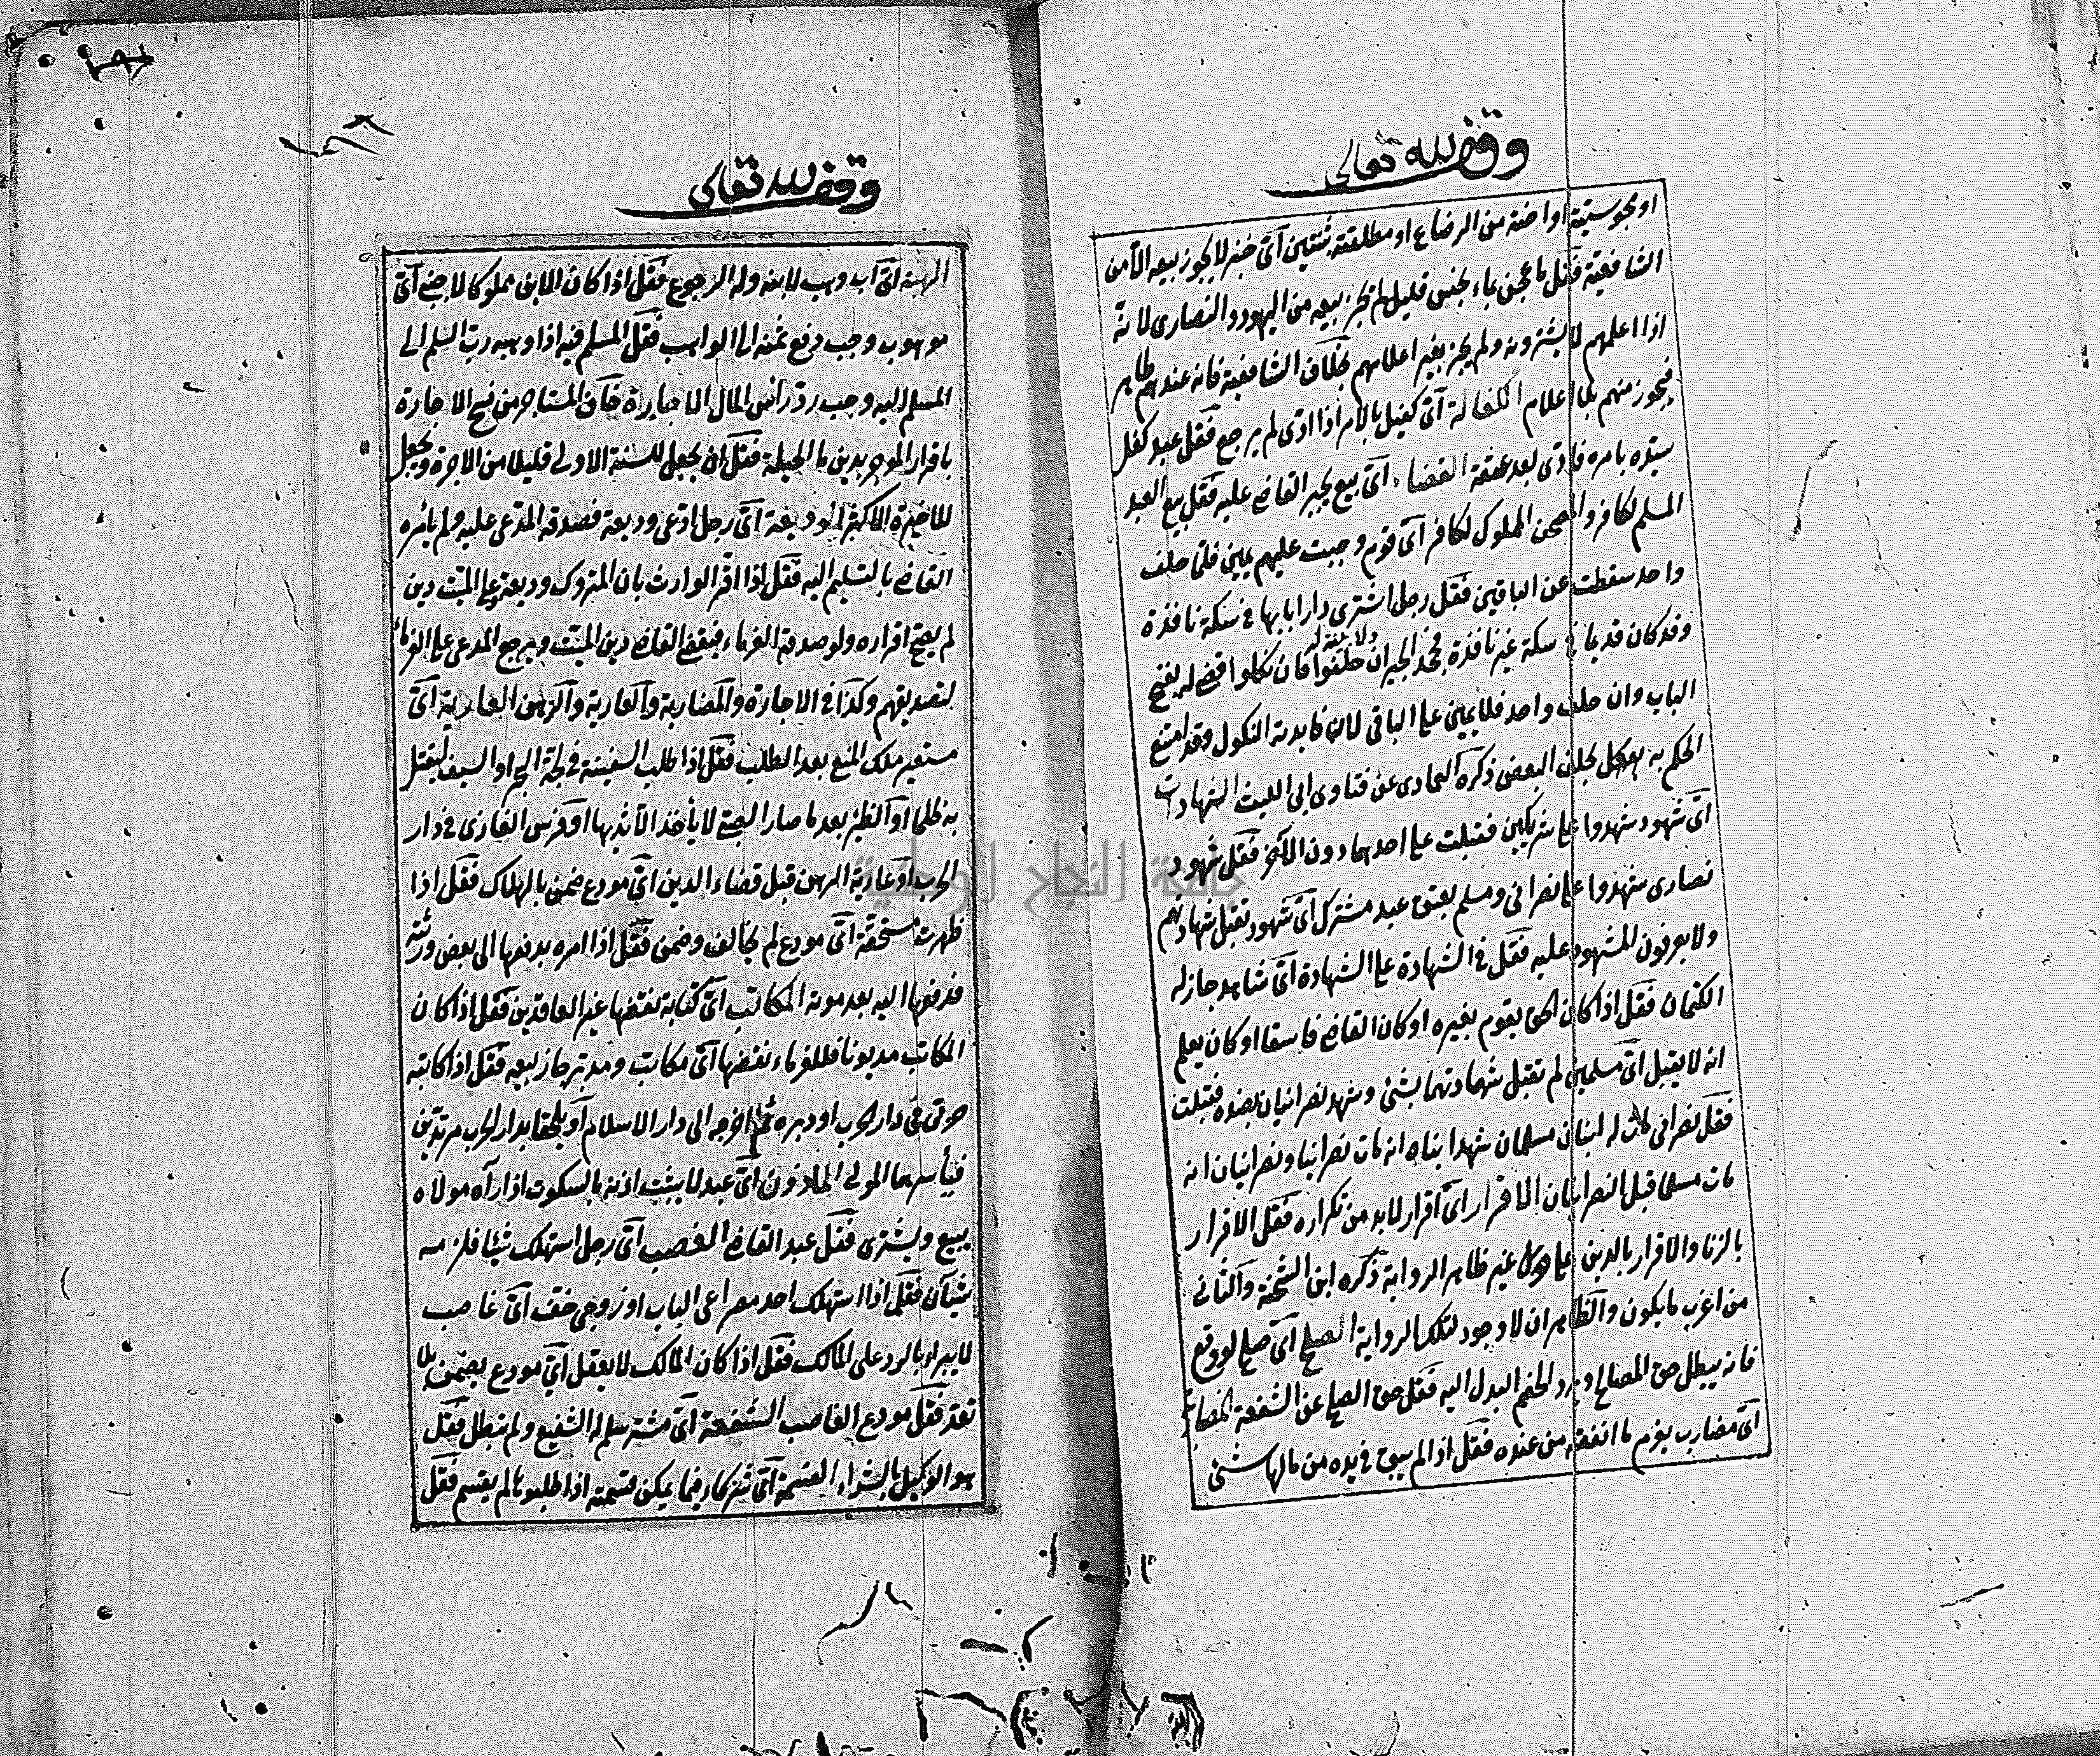 وقف لله تعالى
او مجوسية او اخته من الرضاع او مطلقته بثنتين آی خبز لا يجوز بيعه الا من
الشافعية فقل ما عجن بماء نجس قليل لم يجز بيعه من اليهود والنصارى لانه
اذا اعلمهم لا يشترونه ولم يجز بغير اعلامهم بخلاف الشافعية فانه عندهم طاهر
فيجوز منهم بلا اعلام الكفالة آی كفيل بالامر اذا ادى لم يرجع فقل عبد كفل
سيده بامره فادى بعد عتقه القضاء آی بيع يجبر القاضي عليه فقل بيع العبد
المسلم لكافر والمصحف المملوك لكافر آی قوم وجبت عليهم يمين فلما حلف
واحد سقطت عن الباقين فقل رجل اشترى دارا بابها في سكة نافذة
وقد كان قديما في سكة غير نافذة فجحد الجيران حلفوا فان نكلوا قضي له بفتح
ولا بينة له
الباب وان حلف واحد فلا يمين على الباقي لان فائدته النكول وقد امتنع
الحكم به بحلف البعض ذكره العمادى عن فتاوى ابي الليث الشهادات
آی شهود شهدوا على شريكين فقبلت على احدهما دون الآخر فقل شهود
نصارى شهدوا على نصراني ومسلم بعتق عبد مشترك آی شهود تقبل شهادتهم
ولا يعرفون المشهود عليه فقل في الشهادة على الشهادة آی شاهد جاز له
الكتمان فقل اذا كان الحق يقوم بغيره او كان القاضي فاسقا او كان يعلم
انه لا يقبل آی مسلمين لم تقبل شهادتهما بشئ وشهد نصرانيان بضده فقبلت
فقل نصراني مات له ابنان مسلمان شهدا ابناه انه مات نصرانيا ونصرانيان انه
مات مسلما قبل النصرانيان الاقرار آی اقرار لا بد من تكراره فقل الاقرار
بالزنا والاقرار بالدين على غير ظاهر الرواية ذكره ابن الشحنة والثاني
من اغرب ما يكون والظاهر ان لا وجود لتلك الرواية الصلح آی صلح لو وقع
فانه يبطل حق المصالح ويرد الخصم البدل اليه فقل حق الصلح عن الشفعة المضاربة
آی مضارب يغرم ما انفقه من عنده فقل اذا لم يبق في يده من مالها شئ
وقف لله تعالى
الهبة آی اب وهب لابنه وله الرجوع فقل اذا كان الابن مملوكا لاجنبي آی
موهوب وجب دفع ثمنه الى الواهب فقل المسلم فيه اذا وهبه رب السلم الى
المسلم اليه وجب رد رأس المال الاجارة خاف المستاجر من فسخ الاجارة
باقرار الموجر بدين ما الحيلة فقل ان يجعل للسنة الاولى قليلا من الاجرة ويجعل
للاخيرة الاكثر الوديعة آی رجل ادعى وديعة فصدقه المدعى عليه ولم يأمره
القاضي بالتسليم اليه فقل اذا اقر الوارث بان المتروك وديعة وعلى الميت دين
لم يصح اقراره ولو صدقه الغرماء فيقضي القاضي دين الميت ويرجع المدعي على الغرماء
لتصديقهم وكذا في الاجارة والمضاربة والعارية والرهن العارية آی
مستعير ملك المنع بعد الطلب فقل اذا طلب السفينة في لجة البحر او السيف ليقتل
به ظلما او الظئر بعد ما صار الصبي لا يأخذ الا ثديها او فرس الغازى في دار
الحرب او عارية الرهن قبل قضاء الدين آی مودع ضمن بالهلاك فقل اذا
ظهرت مستحقة آی مودع لم يخالف وضمن فقل اذا امره بدفعها الى بعض ورثته
فدفعها اليه بعد موته المكاتب آی كتابة نقضها غير العاقدين فقل اذا كان
المكاتب مديونا فللغرماء نقضها آی مكاتب ومدبر جاز بيعه فقل اذا كاتبه
حربى في دار الحرب او دبره ثم اخرجه الى دار الاسلام او يلحقا بدار الحرب مرتدين
فيأسرهما المولى المأذون آی عبد لا يثبت اذنه بالسكوت اذا رآه مولاه
يبيع ويشترى فقل عبد القاضي الغصب آی رجل استهلك شيئا فلزمه
شيآن فقل اذا استهلك احد مصراعى الباب او زوجي خف آی غاصب
لا يبرأ بالرد على المالك فقل اذا كان المالك لا يعقل آی مودع يضمن بلا
تعد فقل مودع الغاصب الشفعة آی مشتر سلم له الشفيع ولم تبطل فقل
هو الوكيل بالشراء القسمة آی شركاء فيما يمكن قسمته اذا طلبوها لم يقسم فقل